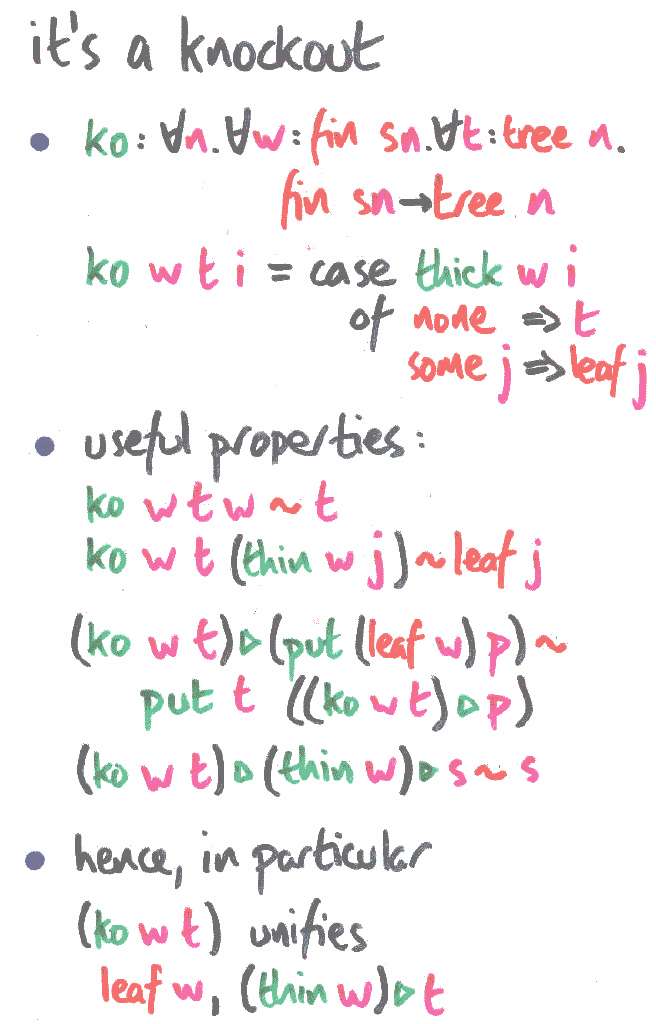 it's a knockout
• ko: ∀n.∀w:fin sn.∀t:tree n.
fin sn→tree n
ko w t i = case thick w i
of none ⇒ t
some j ⇒ leaf j
• useful properties:
ko w t w ~ t
ko w t (thin w j) ~ leaf j
(ko w t)▹(put (leaf w) p) ~
put t ((ko w t)▹p)
(ko w t)▹(thin w)▹s ~ s
• hence, in particular
(ko w t) unifies
leaf w, (thin w)▹t